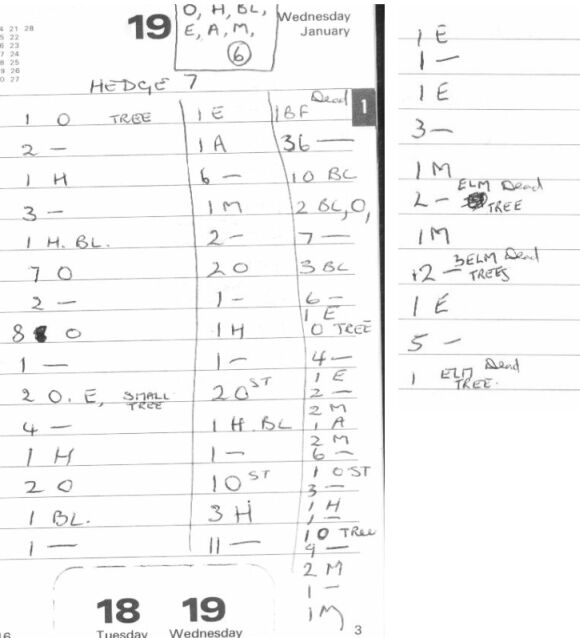 4 21 28
5 22
6 23
7 24
8 25
9 26
0 27
19
O, H, BL,
E, A, M,
6
Wednesday
January
HEDGE 7
1
1 O TREE
2 —
1 H
3 —
1 H. BL.
7 O
2 —
8 O
1 —
2 O. E, SMALL TREE
4 —
1 H
2 O
1 BL.
1 —
1 E
1 A
6 —
1 M
2 —
2 O
1 —
1 H
1 —
2 O ST
1 H. BL
1 —
1 O ST
3 H
11 —
1 BF Dead
36 —
10 BL
2 BL, O,
7 —
3 BL
6 —
1 E
O TREE
4 —
1 E
2 —
2 M
1 A
2 M
6 —
1 O ST
3 —
1 H
1 —
1 O Tree
9 —
2 M
1 —
1 M
18 19
Tuesday Wednesday
3
16
1 E
1 —
1 E
3 —
1 M
2 — ELM Dead TREE
1 M
+2 — 3 ELM Dead TREES
1 E
5 —
1 ELM Dead TREE.